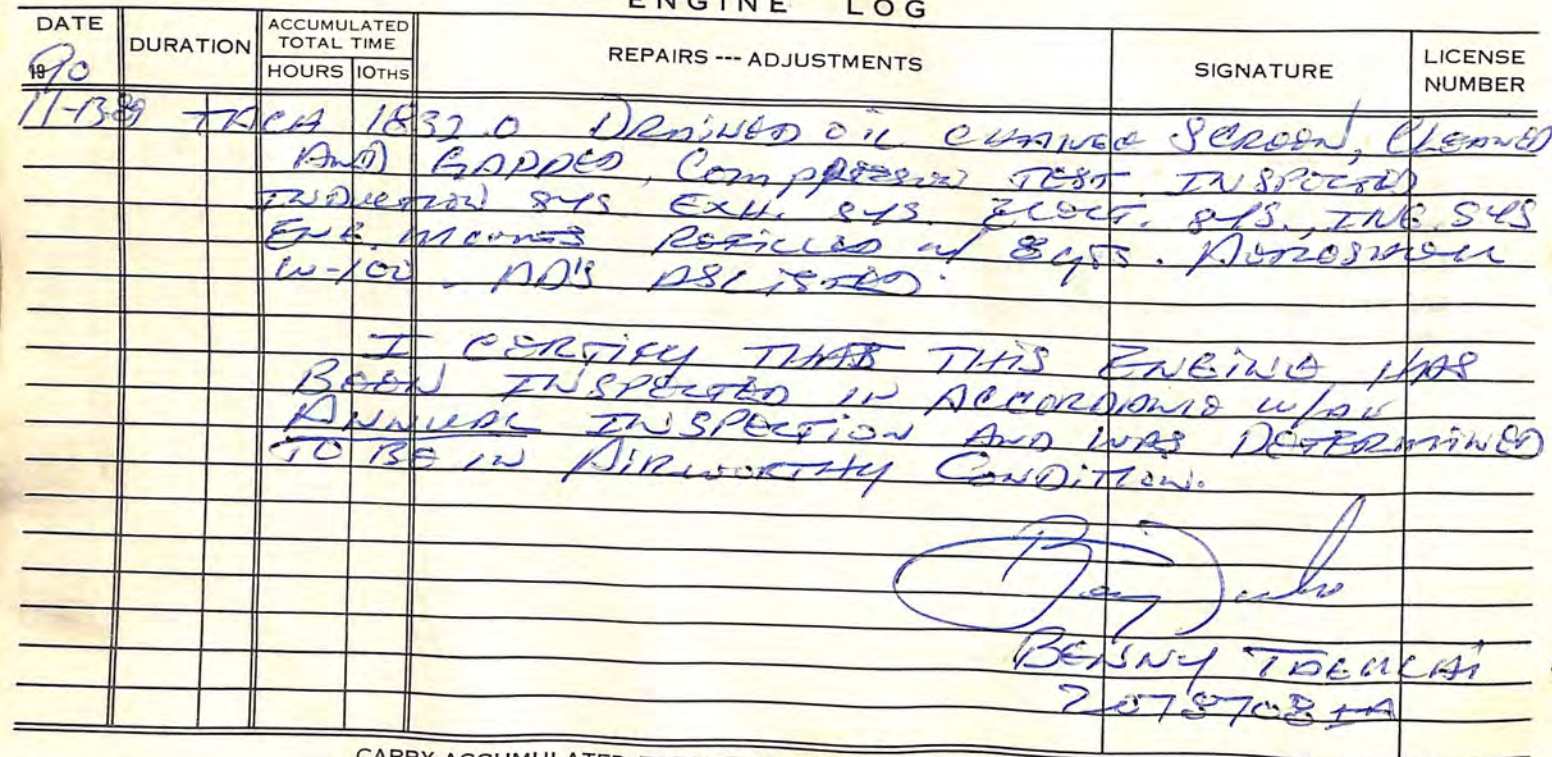 ENGINE LOG
DATE DURATION ACCUMULATED TOTAL TIME HOURS 10THS REPAIRS --- ADJUSTMENTS SIGNATURE LICENSE NUMBER
1990
11-13-89 TACH 1832.0 DRAINED OIL CHANGE SCREEN, CLEANED
AND GAPPED, COMPRESSION TEST. INSPECTED
INDUCTION SYS EXH. SYS. ELECT. SYS., ING. SYS
ENG. MOUNTS REFILLED W/ 8 QTS. AEROSHELL
W-100. AD'S AS LISTED.
I CERTIFY THAT THIS ENGINE HAS
BEEN INSPECTED IN ACCORDANCE W/AN
ANNUAL INSPECTION AND WAS DETERMINED
TO BE IN AIRWORTHY CONDITION.
BENNY
2078708 IA